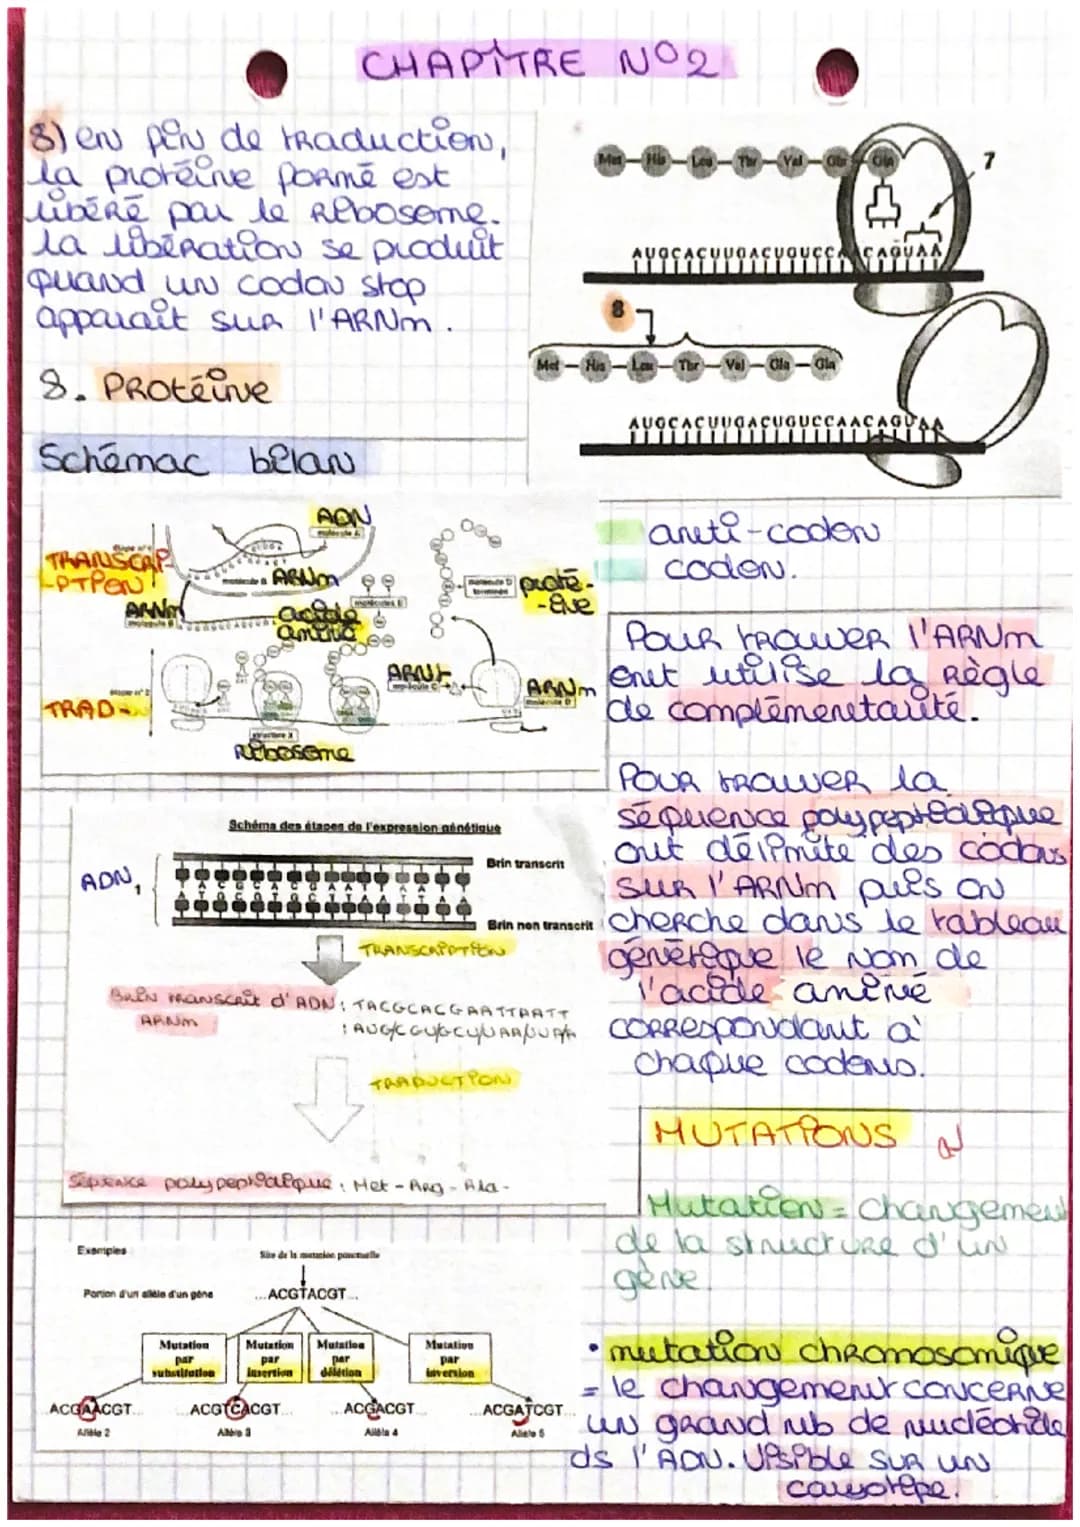 CHAPITRE N°2
8) en fin de traduction,
la protéine formé est
libéré par le Ribosome.
la libération se produit
quand un codon stop
apparait sur l'ARNm.
8. PROtéine
Met – His – Leu – Thr – Val – Gln – Gln
7
AUGCACUUGACUGUCCA CAGUAA
8
Met – His – Leu – Thr – Val – Gln – Gln
AUGCACUUGACUGUCCAACAGUAA
Schémac bilan
ADN
molécule A
TRANSCRIP
-PTION
ARNm
ARNm
molécule B
acide
aminé
molécules E
molécule D
terminée
proté-
-ine
étape n°2
TRAD-
ARNt
molécule C
ARNm
structure X
Ribosome
anti-codon
codon.
Pour trouver l'ARNm
ont utilise la Règle
de complémentarité.
Pour trouver la
séquence polypeptidique
ont délimite des codons
sur l'ARNm puis on
cherche dans le tableau
génétique le nom de
l'acide aminé
correspondant a'
chaque codons.
Schéma des étapes de l'expression génétique
ADN
Brin transcrit
T A C G C A C G A A T T A A T T
Brin non transcrit
TRANSCRIPTION
Brin transcrit d'ADN : TACGCACGAATTAATT
ARNm : AUG/CGU/GCU/UAA/UUAA
TRADUCTION
Séquence polypeptidique : Met - Arg - Ala -
MUTATIONS
Mutation = changement
de la structure d'un
gène.
Exemples
Site de la mutation ponctuelle
Portion d'un allèle d'un gène
...ACGTACGT...
Mutation
par
substitution
Mutation
par
insertion
Mutation
par
délétion
Mutation
par
inversion
ACGAACGT...
ACGTCACGT...
ACGACGT...
ACGATCGT...
Allèle 2
Allèle 3
Allèle 4
Allèle 5
• mutation chromosomique
= le changement concerne
un grand nb de nucléotide
ds l'ADN. Visible sur un
caryotipe.